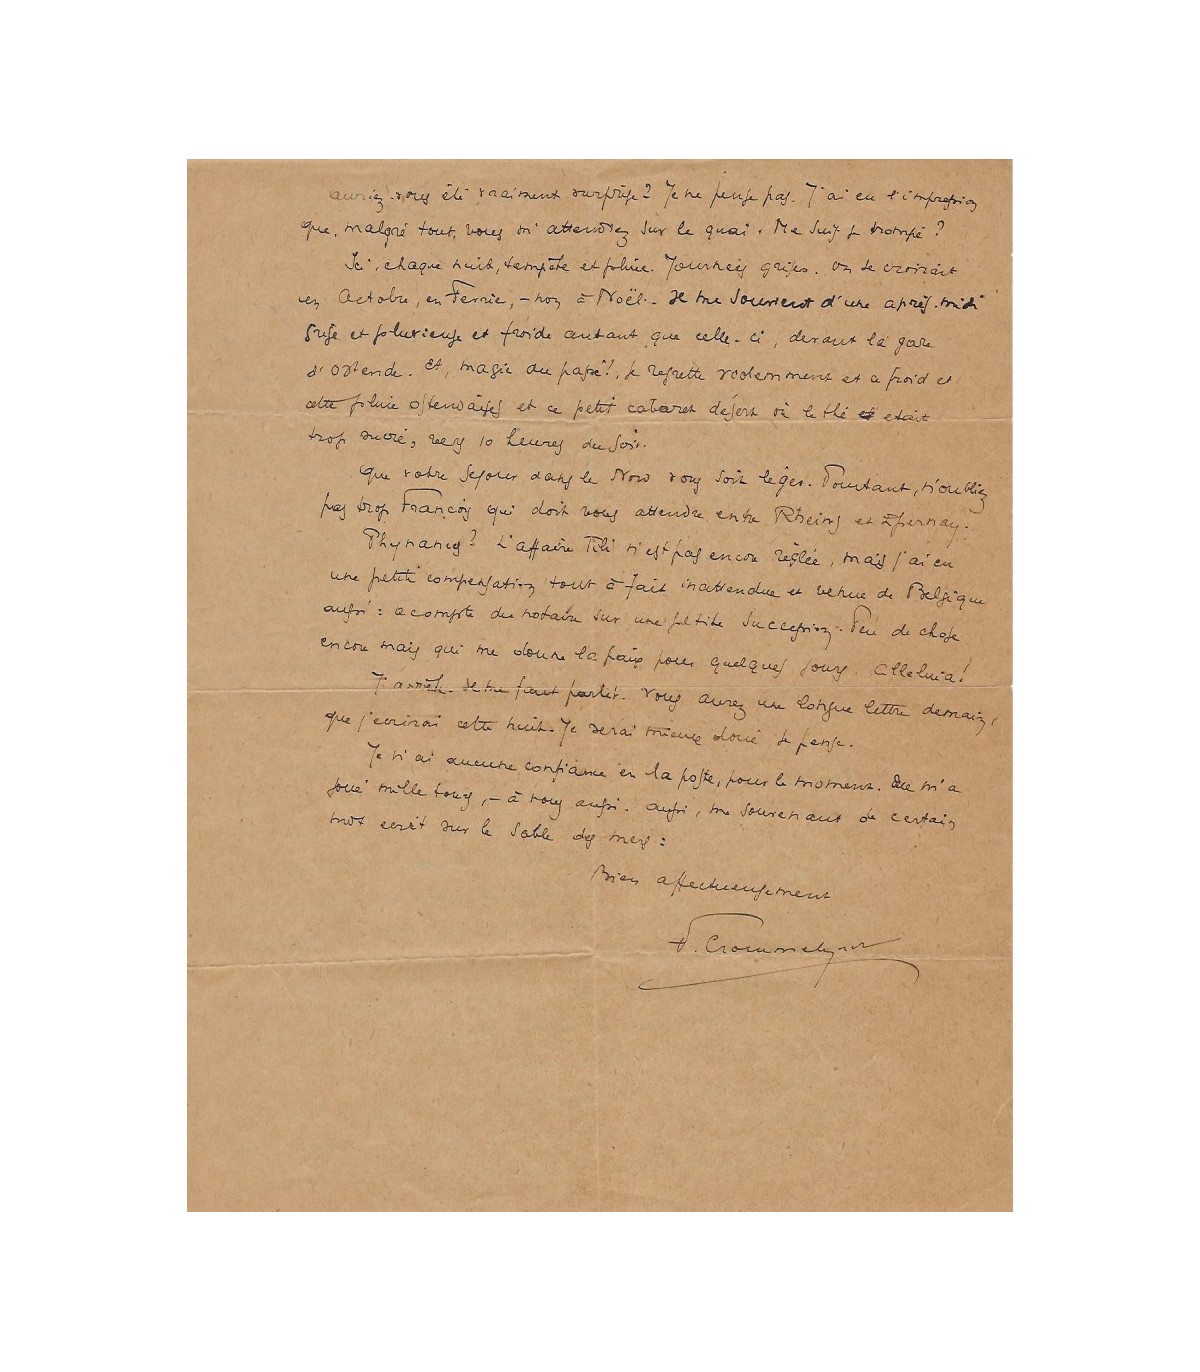 auriez-vous été vraiment surprise? Je ne pense pas. J'ai eu l'impression
que, malgré tout, vous m'attendiez sur le quai. Me suis-je trompé?
Ici, chaque nuit, tempête et pluie. Journées grises. On se croirait
en Octobre, en - non à Noël. Je me souviens d'une après-midi
grise et pluvieuse et froide autant que celle-ci, devant la gare
d'Ostende. Et, magie du passé!, je regrette violemment et ce froid et
cette pluie ostendaises et ce petit cabaret désert où le thé était
trop sucré, vers 10 heures du soir.
Que votre séjour dans le Nord vous soit léger. Pourtant, n'oubliez
pas trop François qui doit vous attendre entre Rheims et Épernay.
Phynances? L'affaire Tili n'est pas encore réglée, mais j'ai eu
une petite compensation tout à fait inattendue et venue de Belgique
aussi: acompte du notaire sur une petite succession. Peu de chose
encore mais qui me donne la paix pour quelques jours. Alleluia!
J'arrête. Il me faut partir. Vous aurez une longue lettre demain,
que j'écrirai cette nuit. Je serai mieux doué je pense.
Je n'ai aucune confiance en la poste, pour le moment. Elle m'a
joué mille tours, - à vous aussi. Aussi, me souvenant de certain
mot écrit sur le sable des mers:
Bien affectueusement
F. Crommelynck